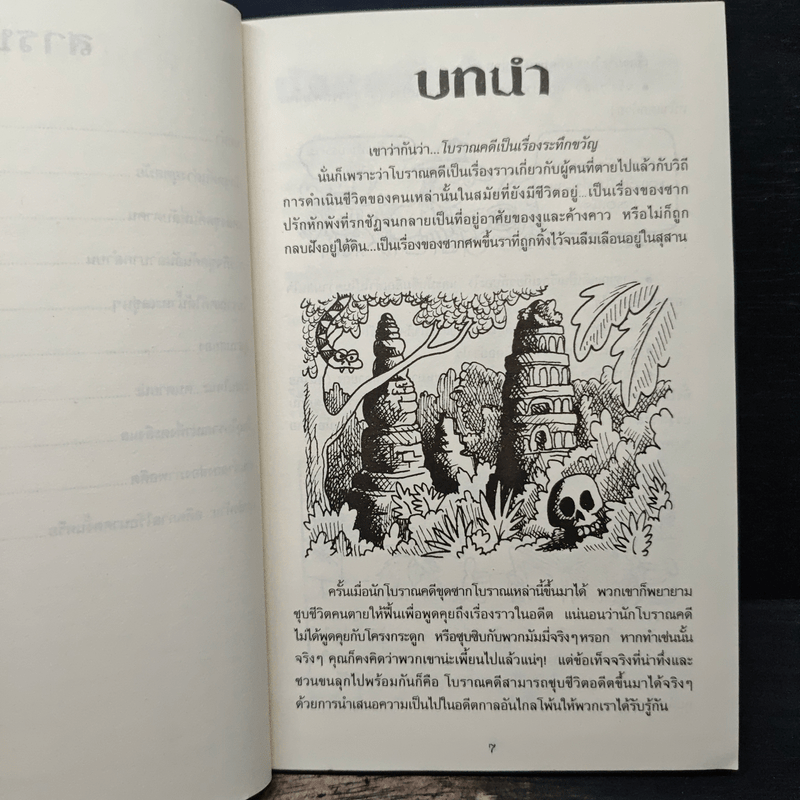 สาร
บทนำ
เขาว่ากันว่า...โบราณคดีเป็นเรื่องระทึกขวัญ
นั่นก็เพราะว่าโบราณคดีเป็นเรื่องราวเกี่ยวกับผู้คนที่ตายไปแล้วกับวิถี
การดำเนินชีวิตของคนเหล่านั้นในสมัยที่ยังมีชีวิตอยู่...เป็นเรื่องของซาก
ปรักหักพังที่รกชัฏจนกลายเป็นที่อยู่อาศัยของงูและค้างคาว หรือไม่ก็ถูก
กลบฝังอยู่ใต้ดิน...เป็นเรื่องของซากศพขึ้นราที่ถูกทิ้งไว้จนลืมเลือนอยู่ในสุสาน
ครั้นเมื่อนักโบราณคดีขุดซากโบราณเหล่านี้ขึ้นมาได้ พวกเขาก็พยายาม
ชุบชีวิตคนตายให้ฟื้นเพื่อพูดคุยถึงเรื่องราวในอดีต แน่นอนว่านักโบราณคดี
ไม่ได้พูดคุยกับโครงกระดูก หรือซุบซิบกับพวกมัมมี่จริงๆหรอก หากทำเช่นนั้น
จริงๆ คุณก็คงคิดว่าพวกเขาน่ะเพี้ยนไปแล้วแน่ๆ! แต่ข้อเท็จจริงที่น่าทึ่งและ
ชวนขนลุกไปพร้อมกันก็คือ โบราณคดีสามารถชุบชีวิตอดีตขึ้นมาได้จริงๆ
ด้วยการนำเสนอความเป็นไปในอดีตกาลอันไกลโพ้นให้พวกเราได้รับรู้กัน
๗